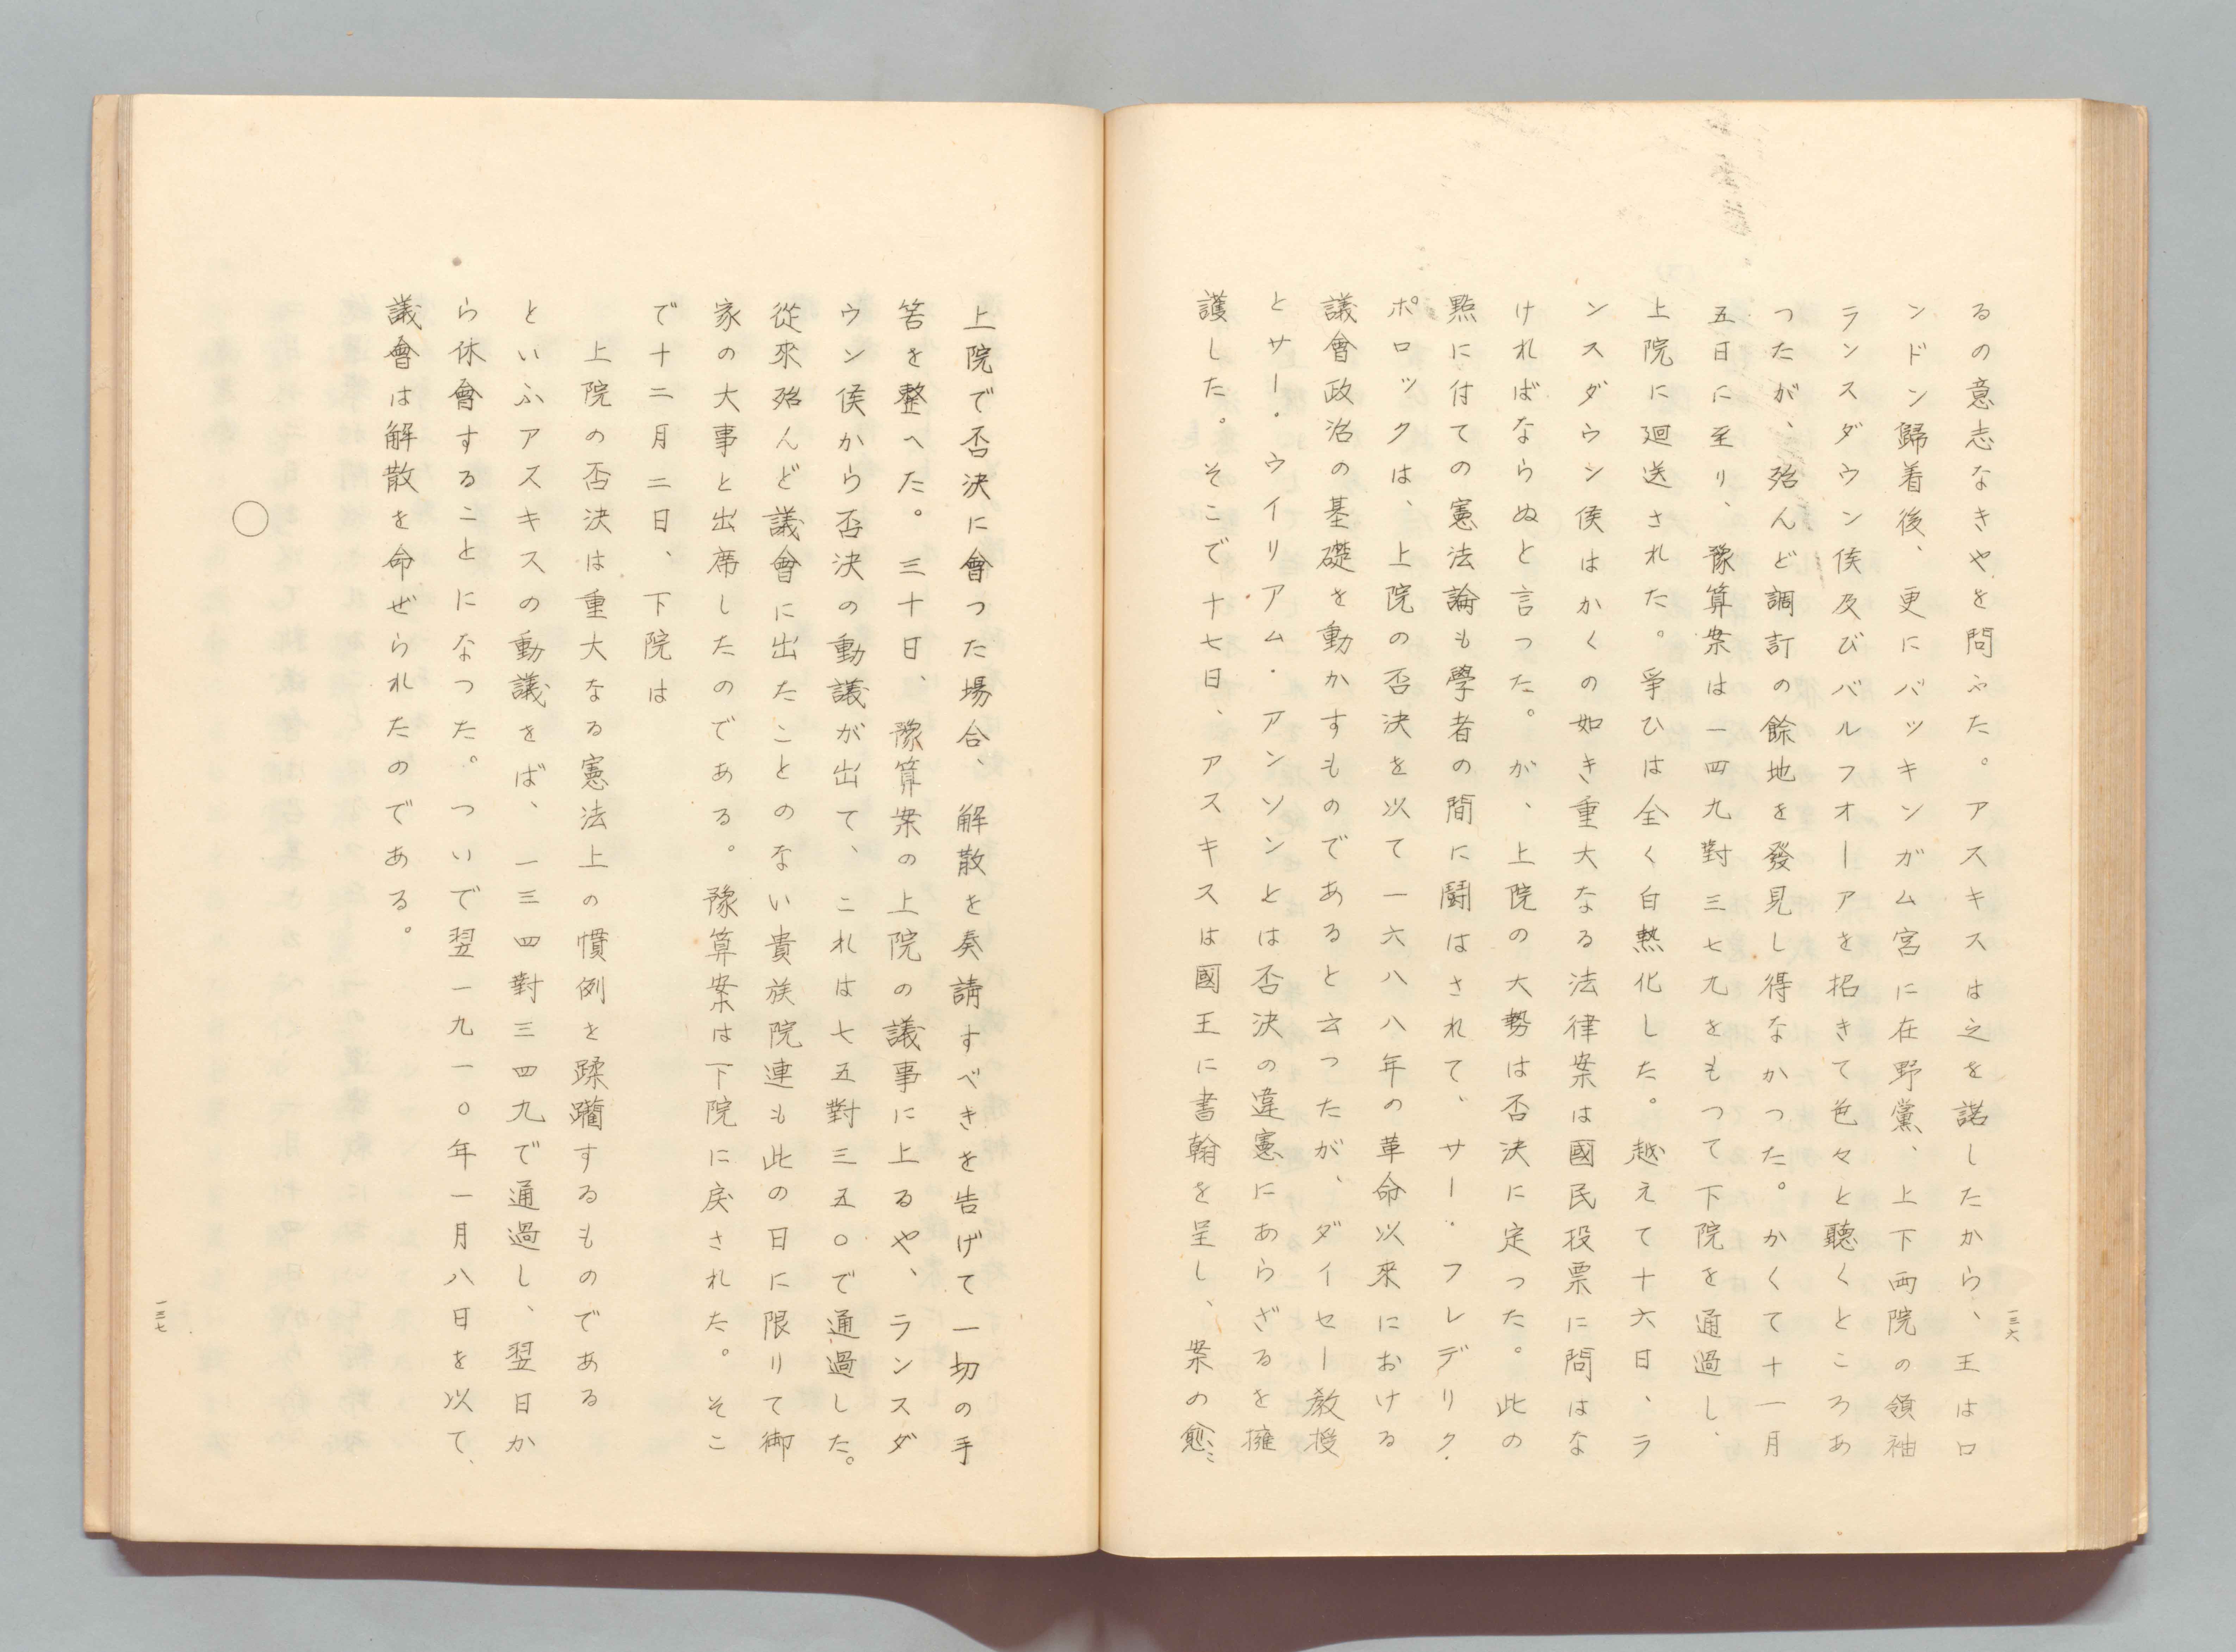 るの意志なきやを問ふた。アスキスは之を諾したから、王はロ
ンドン歸着後、更にバッキンガム宮に在野黨、上下両院の領袖
ランスダウン侯及びバルフオーアを招きて色々と聽くところあ
つたが、殆んど調訂の餘地を發見し得なかつた。かくて十一月
五日に至り、豫算案は一四九對三七九をもつて下院を通過し、
上院に廻送された。爭ひは全く白熱化した。越えて十六日、ラ
ンスダウン侯はかくの如き重大なる法律案は國民投票に問はな
ければならぬと言つた。が、上院の大勢は否決に定つた。此の
點に付ての憲法論も學者の間に鬪はされて、サー・フレデリク・
ポロックは、上院の否決を以て一六八八年の革命以來における
議會政治の基礎を動かすものであると云つたが、ダイセー教授
とサー・ウイリアム・アンソンとは否決の違憲にあらざるを擁
護した。そこで十七日、アスキスは國王に書翰を呈し、案の愈〻
一三六
上院で否決に會つた場合、解散を奏請すべきを告げて一切の手
筈を整へた。三十日、豫算案の上院の議事に上るや、ランスダ
ウン侯から否決の動議が出て、これは七五對三五〇で通過した。
從來殆んど議會に出たことのない貴族院連も此の日に限りて御
家の大事と出席したのである。豫算案は下院に戻された。そこ
で十二月二日、下院は
上院の否決は重大なる憲法上の慣例を蹂躪するものである
といふアスキスの動議をば、一三四對三四九で通過し、翌日か
ら休會することになつた。ついで翌一九一〇年一月八日を以て、
議會は解散を命ぜられたのである。
○
一三七